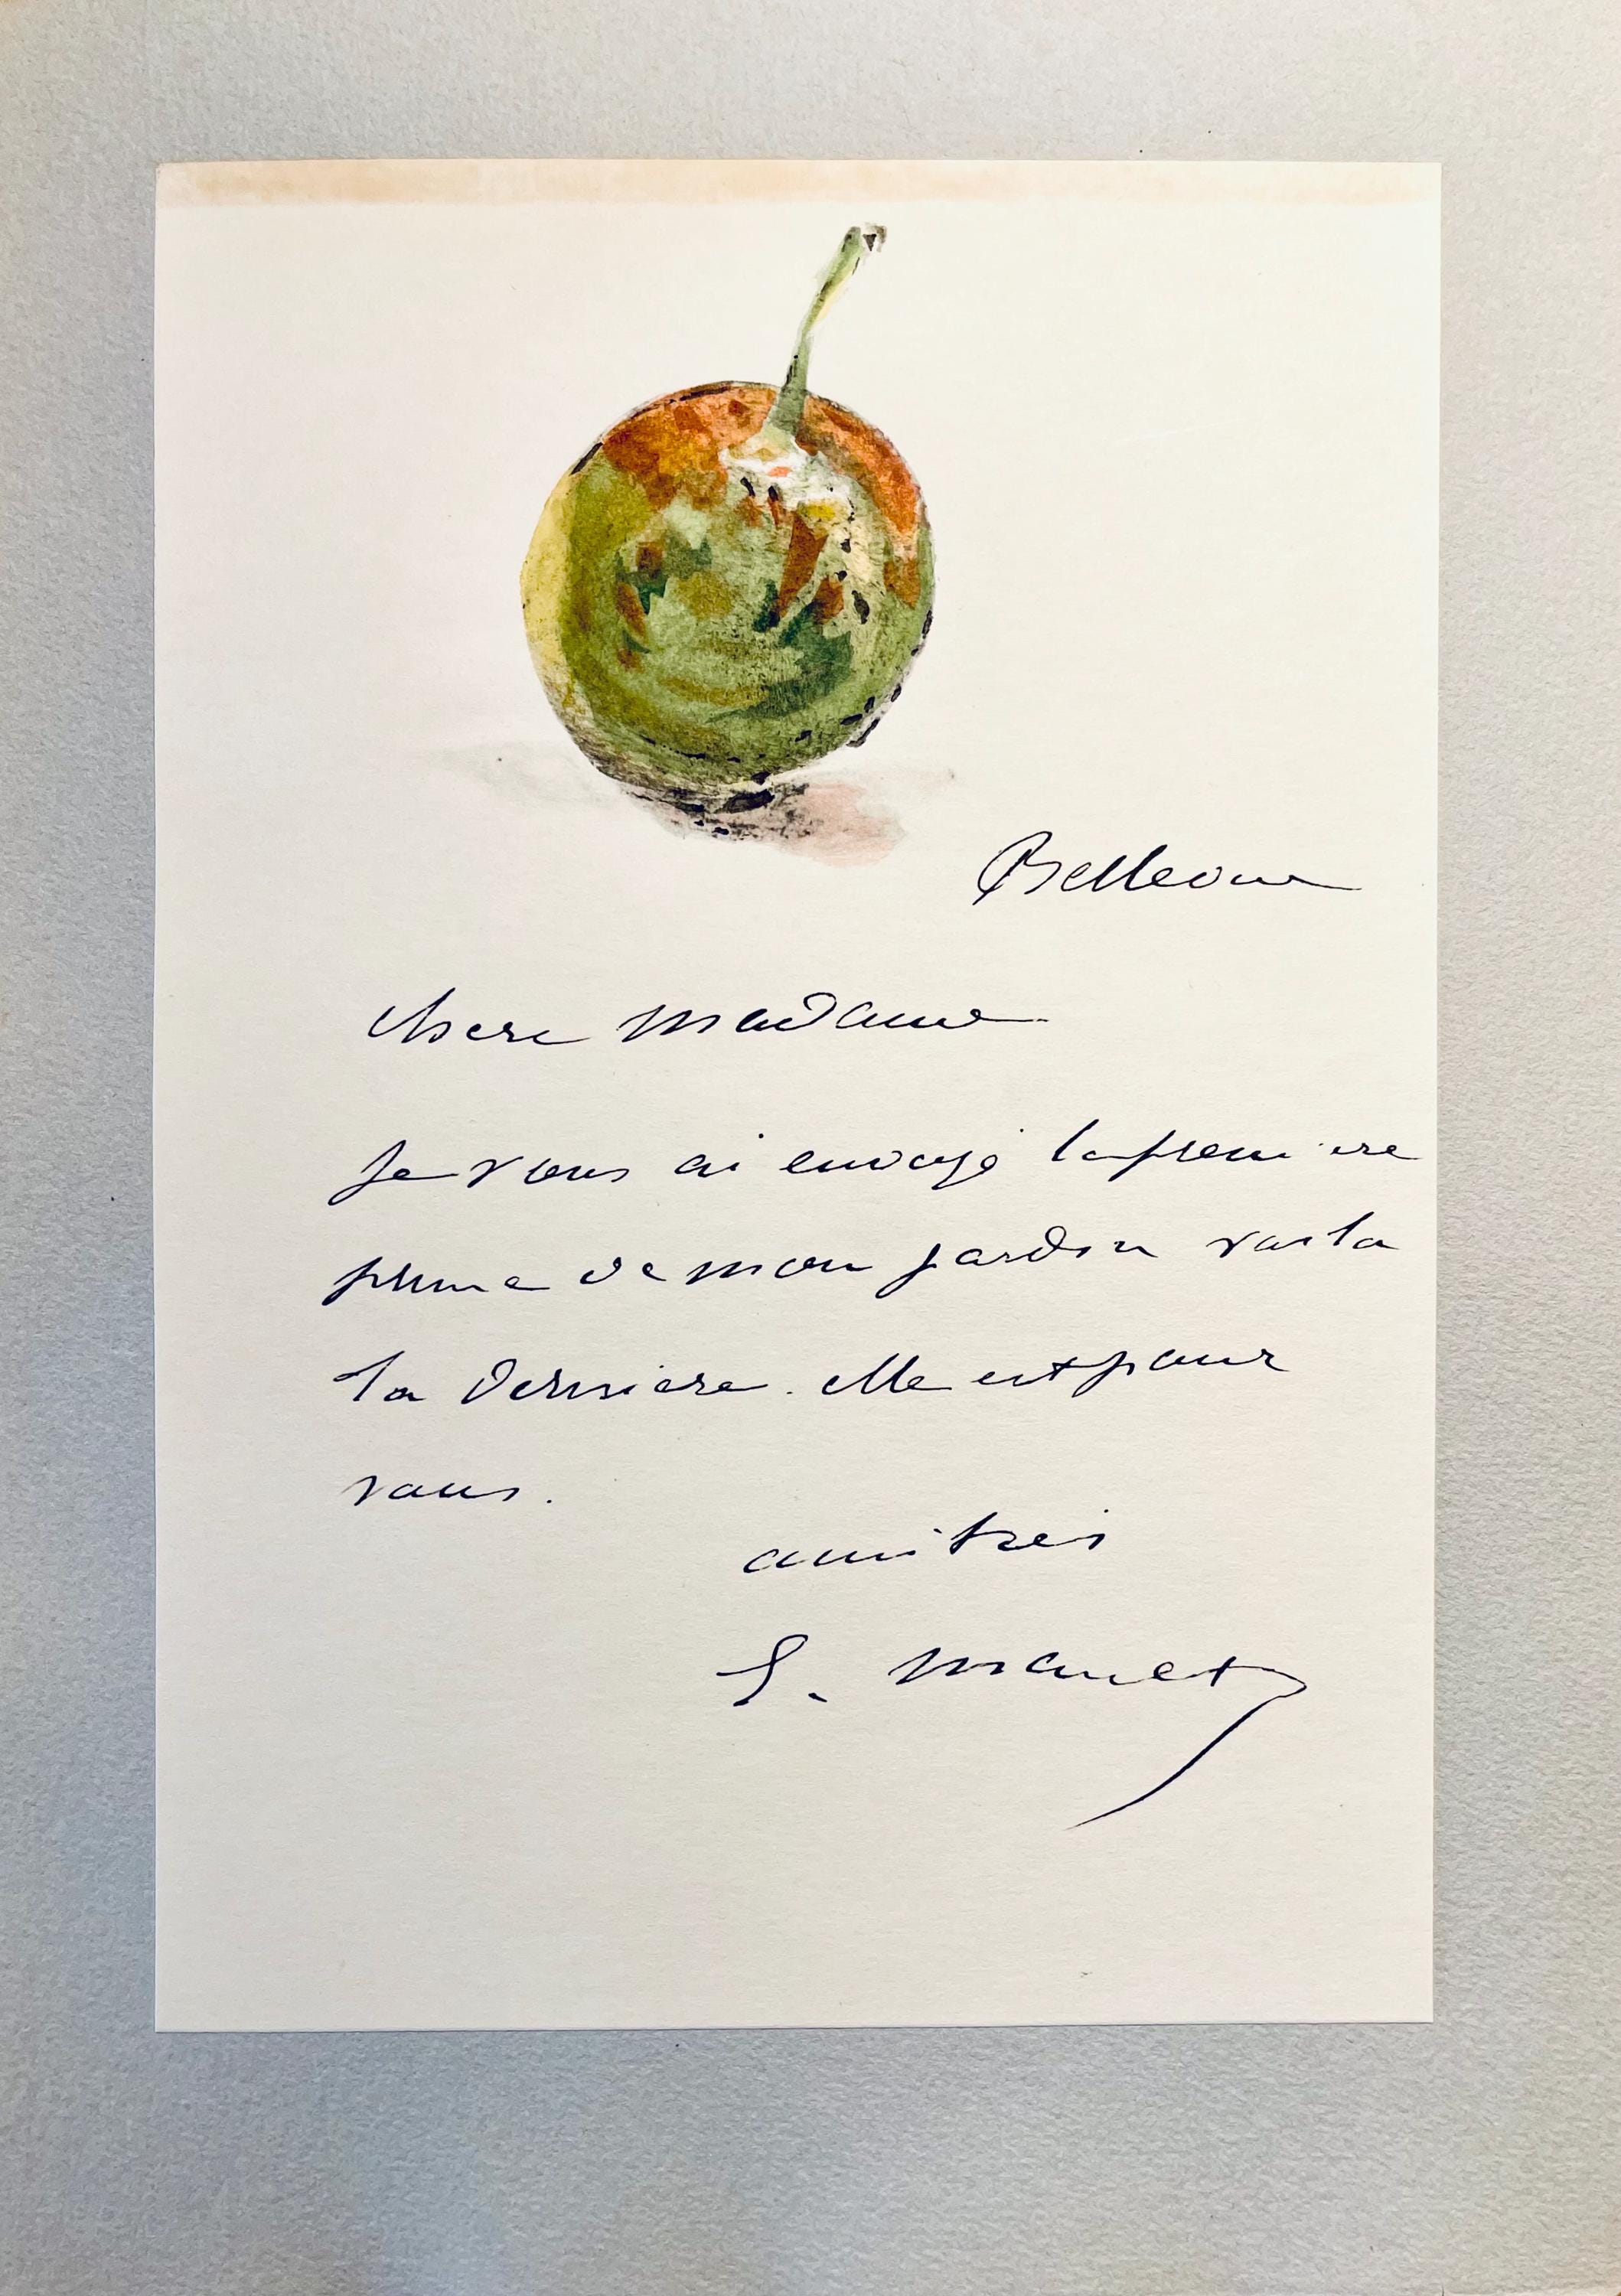 Bellevue
chere madame
Je vous ai envoyé la premiere
prune de mon jardin voila
la derniere. elle est pour
vous.
amitiés
E. Manet